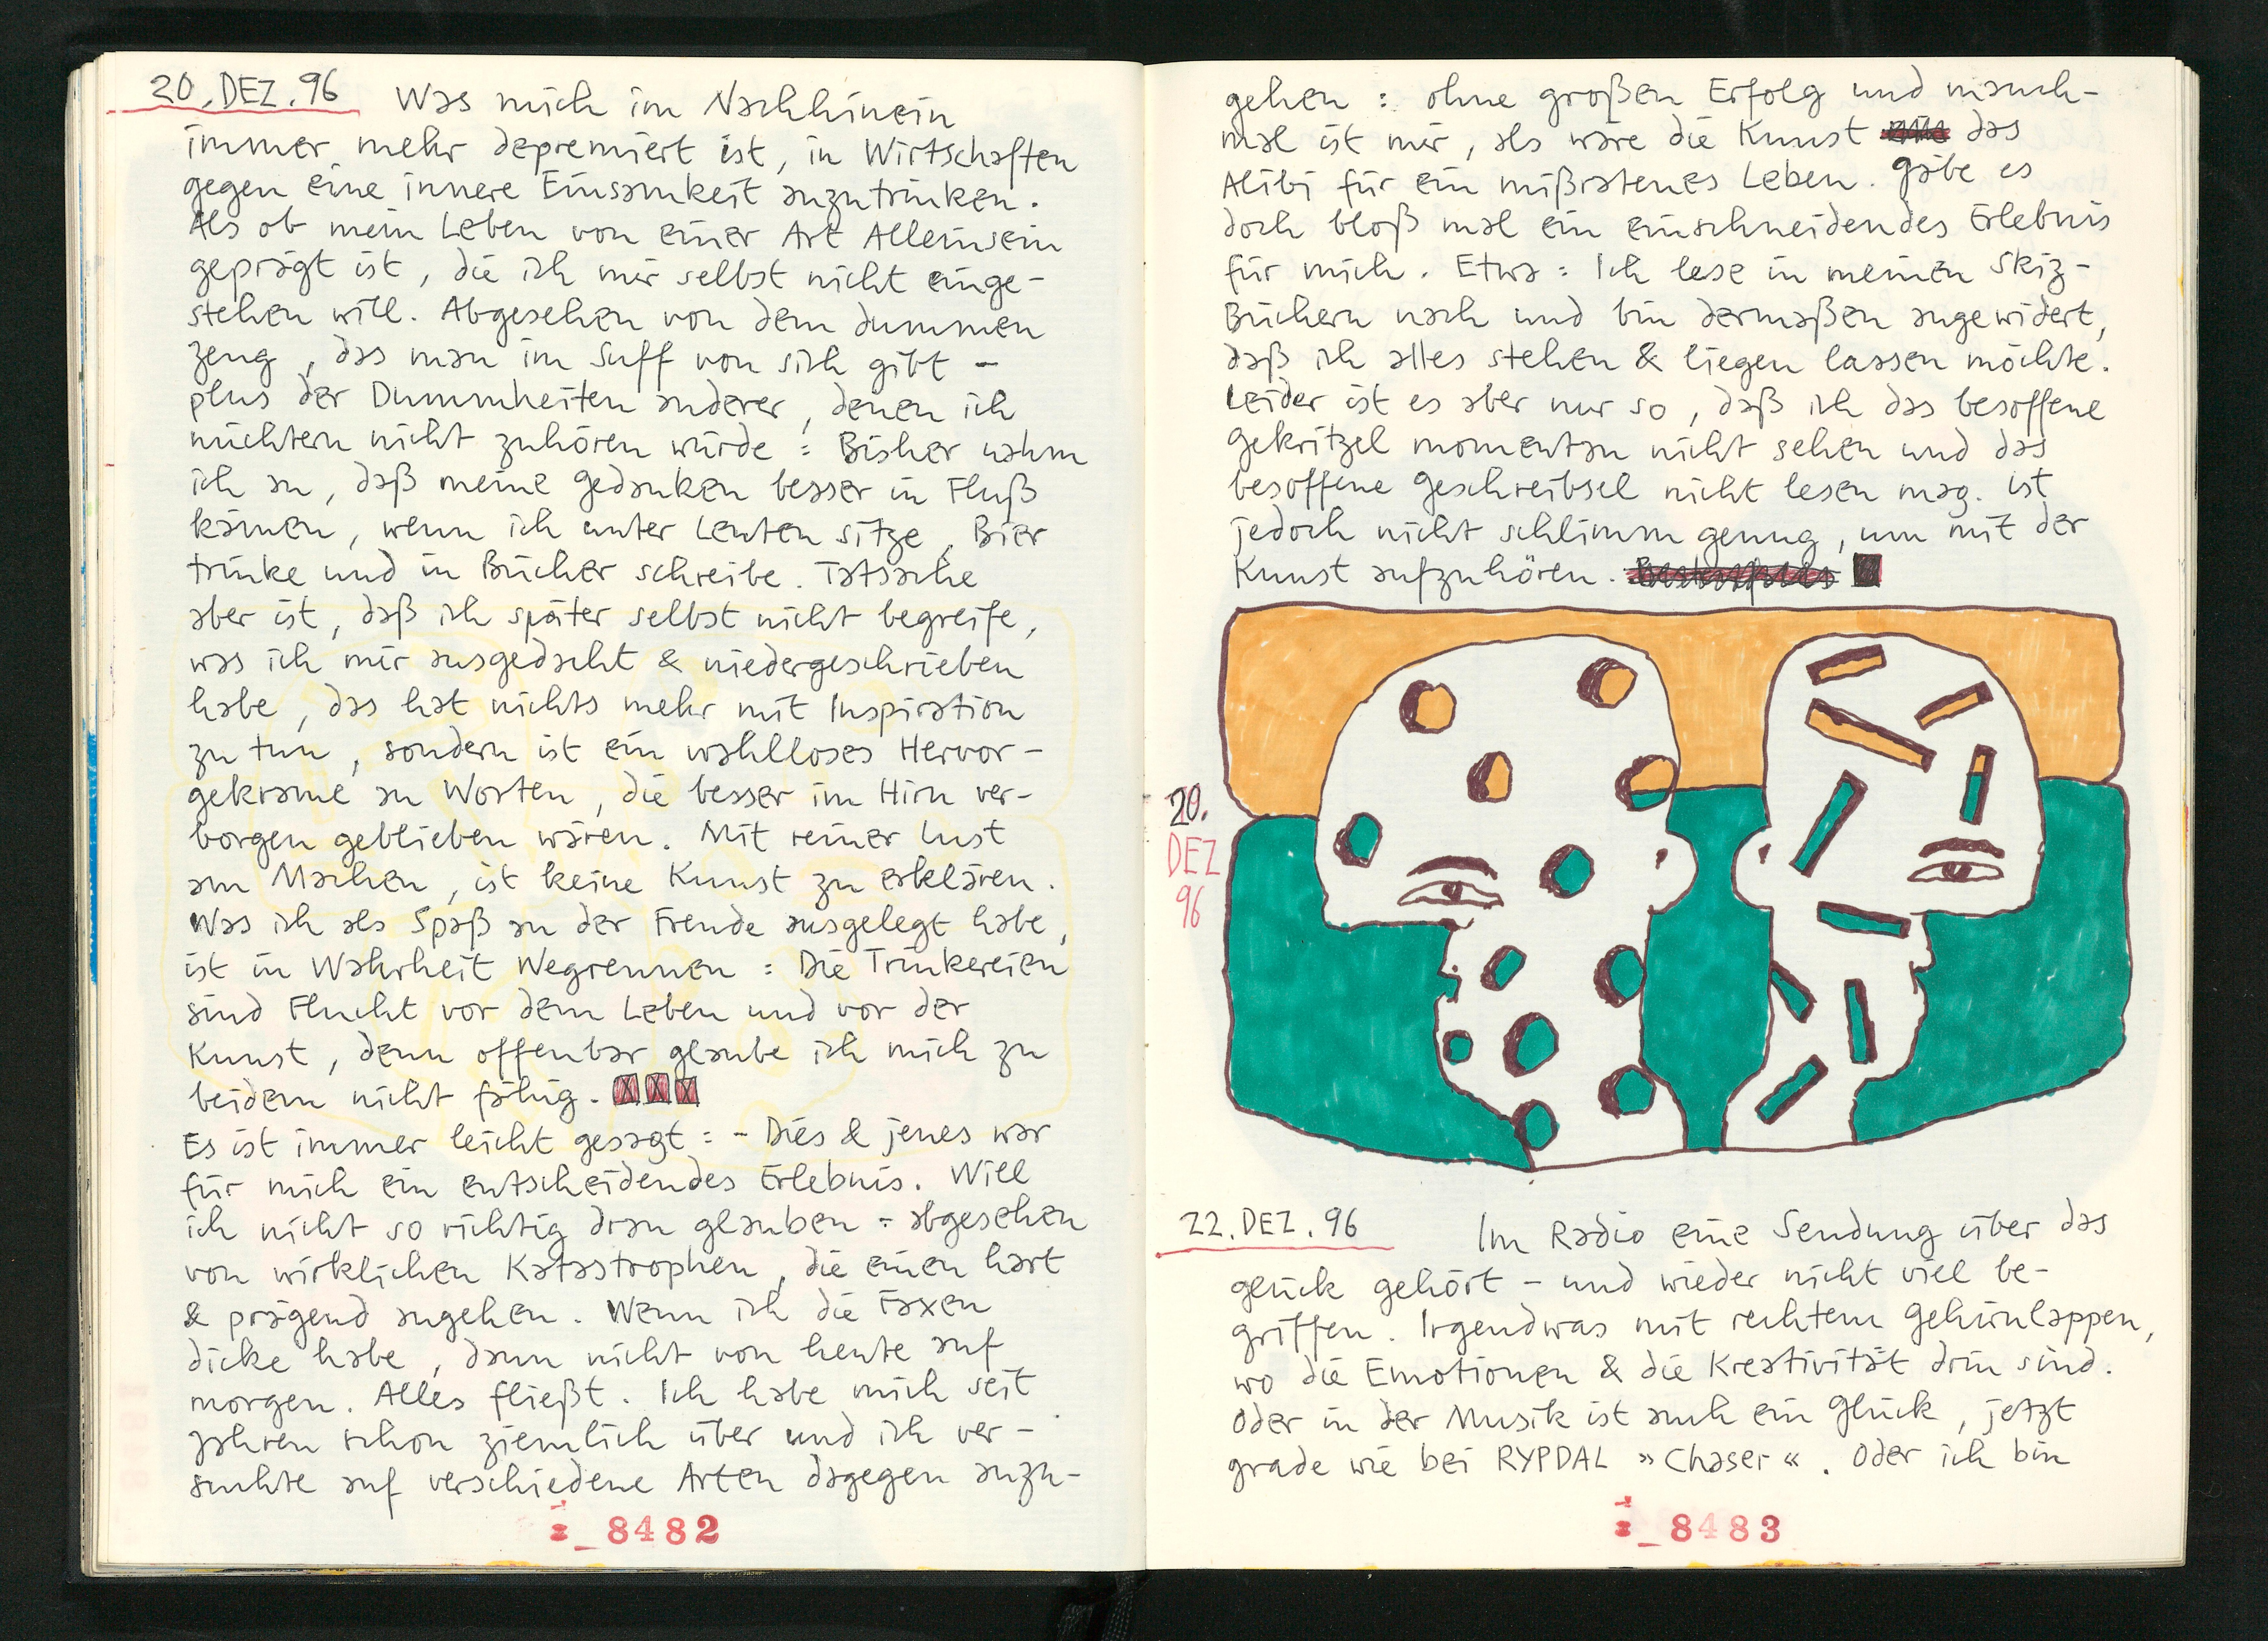 20. DEZ. 96 Was mich im Nachhinein
immer mehr depremiert ist, in Wirtschaften
gegen eine innere Einsamkeit anzutrinken.
Als ob mein Leben von einer Art Alleinsein
geprägt ist, die ich mir selbst nicht einge-
stehen will. Abgesehen von dem dummen
Zeug, das man im Suff von sich gibt –
plus der Dummheiten anderer, denen ich
nüchtern nicht zuhören würde : Bisher nahm
ich an, daß meine Gedanken besser in Fluß
kämen, wenn ich unter Leuten sitze, Bier
trinke und in Bücher schreibe. Tatsache
aber ist, daß ich später selbst nicht begreife,
was ich mir ausgedacht & niedergeschrieben
habe, das hat nichts mehr mit Inspiration
zu tun, sondern ist ein wahlloses Hervor-
gekrame an Worten, die besser im Hirn ver-
borgen geblieben wären. Mit reiner Lust
am Machen, ist keine Kunst zu erklären.
Was ich als Spaß an der Freude ausgelegt habe,
ist in Wahrheit Wegrennen : Die Trinkereien
sind Flucht vor dem Leben und vor der
Kunst, denn offenbar glaube ich mich zu
beidem nicht fähig.
Es ist immer leicht gesagt : – Dies & jenes war
für mich ein entscheidendes Erlebnis. Will
ich nicht so richtig dran glauben : abgesehen
von wirklichen Katastrophen, die einen hart
& prägend angehen. Wenn ich die Faxen
dicke habe, dann nicht von heute auf
morgen. Alles fließt. Ich habe mich seit
Jahren schon ziemlich über und ich ver-
suchte auf verschiedene Arten dagegen anzu-
8482
gehen : ohne großen Erfolg und manch-
mal ist mir, als wäre die Kunst das
Alibi für ein mißratenes Leben. Gäbe es
doch bloß mal ein einschneidendes Erlebnis
für mich. Etwa : Ich lese in meinen Skiz-
Büchern nach und bin dermaßen angewidert,
daß ich alles stehen & liegen lassen möchte.
Leider ist es aber nur so, daß ich das besoffene
Gekritzel momentan nicht sehen und das
besoffene Geschreibsel nicht lesen mag. Ist
jedoch nicht schlimm genug, um mit der
Kunst aufzuhören.
20.
DEZ
96
22. DEZ. 96 Im Radio eine Sendung über das
Glück gehört – und wieder nicht viel be-
griffen. Irgendwas mit rechtem Gehirnlappen,
wo die Emotionen & die Kreativität drin sind.
Oder in der Musik ist auch ein Glück, jetzt
grade wie bei RYPDAL »Chaser«. Oder ich bin
8483